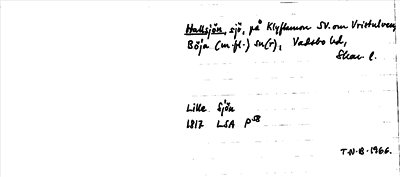 Hallsjön, sjö, på Klyftamon SV. om Vristulven,
Böja (m.fl.) sn(r), Vadsbo hd,
Skar. l.
Lilla Sjön
1817 LSA P 58
T.N.B. 1966.